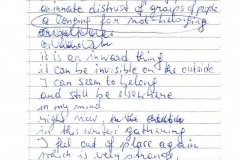 an innate distrust of groups of people
a longing for not-belonging
it is an inward thing
it can be invisible on the outside
I can seem to belong
and still be elsewhere
in my mind
right now, in the
in this writers' gathering
I feel out of place again
which is very strange